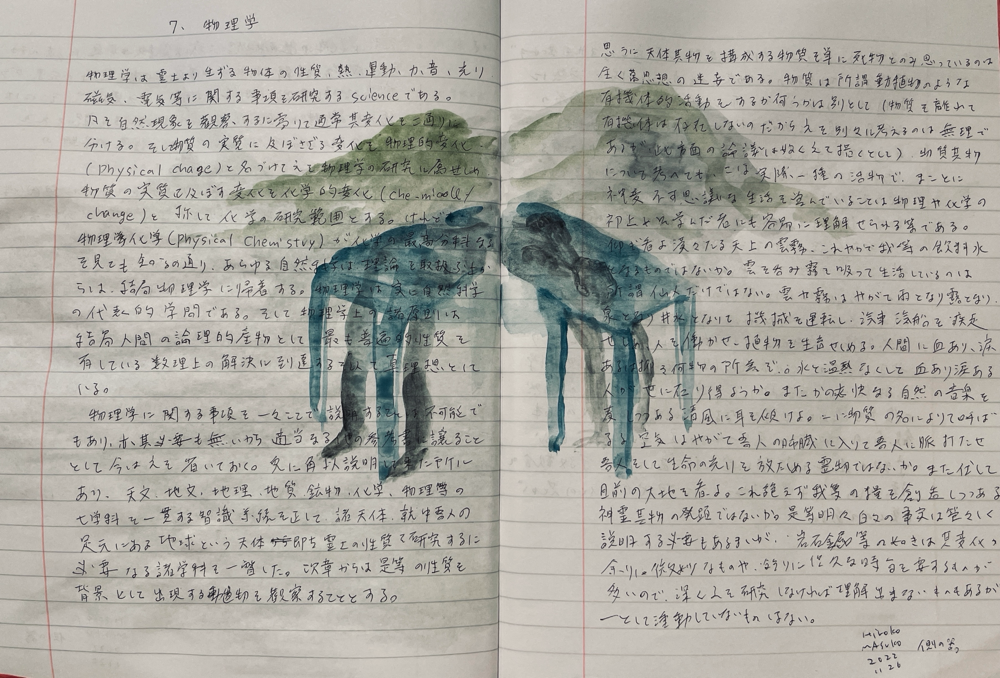 7、物理学
物理学は霊土より生ずる物体の性質、熱、運動、力、音、光り
磁気、電気等に関する事項を研究するscienceである。
凡そ自然現象を観察するに当りて通常其変化を二通りに
分ける。そし物質の実質に及ぼさざる変化を物理的変化
(physical change)と名づけてこれを物理学の研究に属せしめ
物質の実質に及ぼす変化を化学的変化(chemically
change)と称して化学の研究範囲とする。けれど
物理学化学(physical Chemistry)が化学の最高分科なる
を見ても知るの通り、あらゆる自然科学は理論を取扱ふ
らは、結局物理学に帰着する。物理学は実に自然科学
の代表的学問である。そして物理学上の論
結局人間の論理的産物として最も普遍的性質を
有している数理上の解決に到達するを以て真理想として
いる。
物理学に関する事項を一々ここで説明することは不可能で
もあり、亦其必要も無いから適当なる他の参考書に譲ること
として今はこれを省いておく。兎に角以
あり、天文、地文、地理、地質、鉱物、化学、物理等の
七学科を一貫する智識系統を正して、諸天体、就中吾人の
足元にある地球という天体即ち霊土の性質を研究するに
必要なる諸学科を一瞥した。次章からは是等の性質を
背景として出現する動植物を観察することとする。
思うに天体其物を構成する物質を単に死物とのみ思っているのは
全く旧思想の迷妄である。物質は所謂動植物のような
有機体的活動をするか何うかは別として(物質を離れて
有機体は存在しないのだからこれを別々に考えるのは無理で
あるが此方面の論議は暫くこれを措くとして)、物質其物
について考へても、こは実際一種の活物で、まことに
神変不可思議な生活を営んでいることは物理や化学の
初歩を学んだ者にも容易に理解せられる筈である。
仰ぎ看よ漠々たる天上の雲霧、これやがて我等の飲料水
となるものではないか。雲を呑み霧を吸って生活しているのは
所謂仙人だけではない。雲や霧はやがて雨となり露となり、
泉となり井水となりても機械を運転し、汽車汽船を疾走
せしめ、人を働かせ、植物を生育せしめる。人間に血あり、涙
あるは抑も何物の所為ぞ。水と温熱なくして血あり涙ある
人が世に在り得ようか。またかの爽快なる自然の音楽を
奏しつつある清風に耳を傾けよ。一に物質の名によりて呼ば
るる空気はやがて吾人の肺臓に入って吾人に脈打たせ
吾人をして生命の光りを放たしめる霊物ではないか。また伏して
目前の大地を看よ。これ絶えず我等の糧を創造しつつある
神霊其物の発顕ではないか。是等明々白々の事実は管々しく
説明する必要もあるまいが、岩石金属等の如きは其変化の
余りに微妙なものや、余りに悠久な時間を要するものが
多いので、深くこれを研究しなければ理解出来ないものもあるが
一として活動していないものはない。
Hiroko
MAsuko
2022
11 26